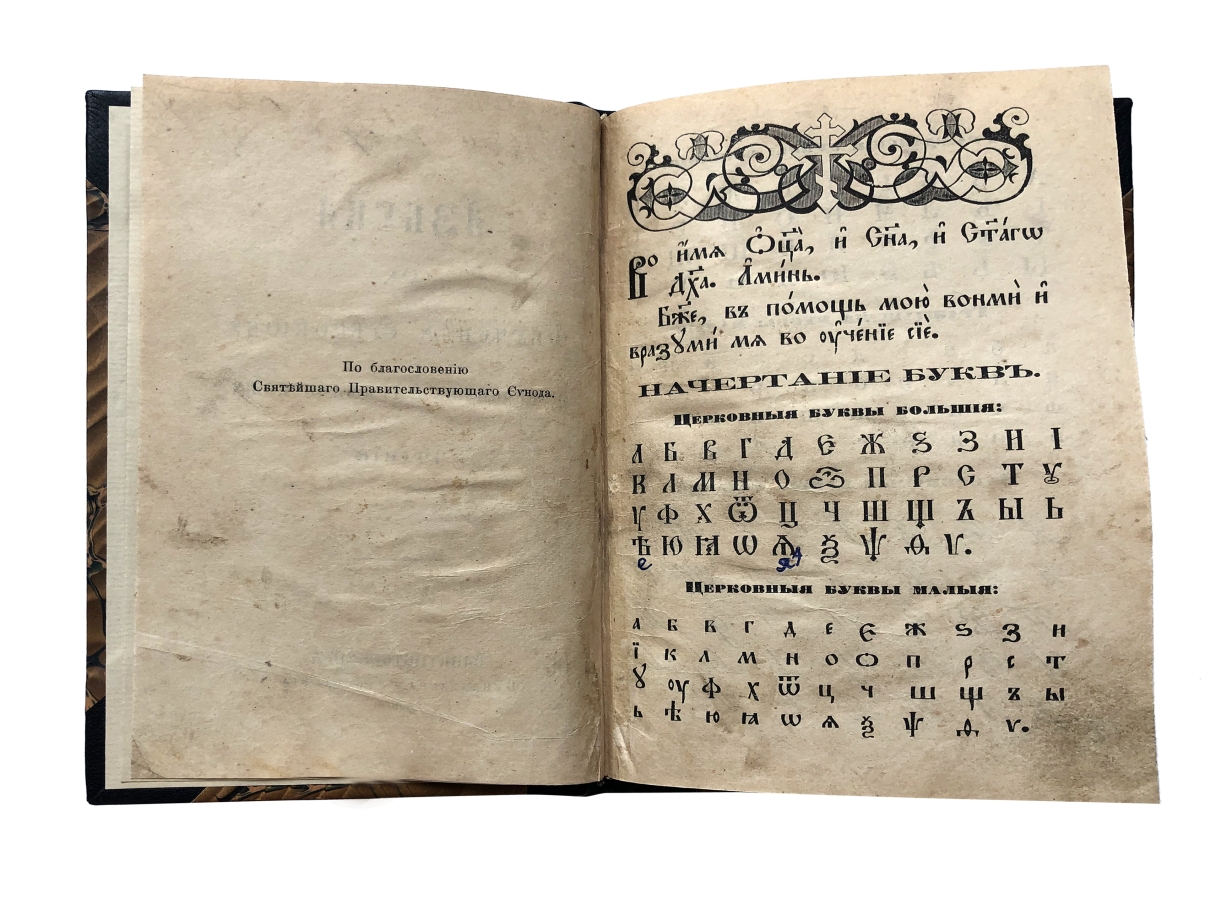 По благословенію
Святѣйшаго Правительствующаго Сѵнода.
Во и҆́мѧ Ѻ҆ц҃а̀, и҆ Сн҃а, и҆ Ст҃а́гѡ
Дх҃а. А҆ми́нь.
Бж҃е, въ по́мощь мою̀ вонмѝ и҆
вразꙋми́ мѧ во ᲂу҆че́нїе сїѐ.
НАЧЕРТАНІЕ БУКВЪ.
Церковныя буквы большія:
А Б В Г Д Є Ж Ѕ З И І
К Л М Н О Ѽ П Р С Т Ꙋ
Ѵ Ф Х Ѿ Ц Ч Ш Щ Ъ Ы Ь
Ѣ Ю Ꙗ Ѡ Ѧ Ѯ Ѱ Ѳ Ѵ.
е я
Церковныя буквы малыя:
а б в г д е є ж ѕ з и
ї к л м н о ѻ п р с т
ꙋ ᲂу ф х ѿ ц ч ш щ ъ ы
ь ѣ ю ꙗ ѡ ѧ ѯ ѱ ѳ ѵ.